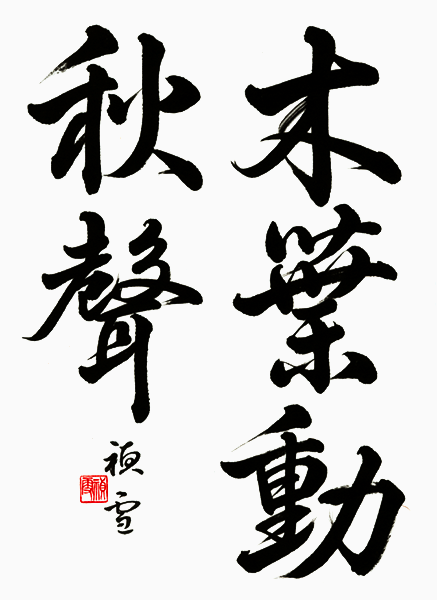 木葉動
秋聲
禎雪